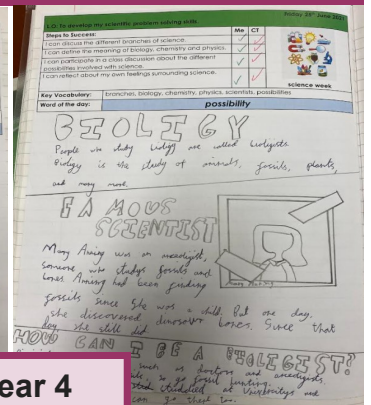 Friday 25th June 2021
L.O. To develop my scientific problem solving skills.
Steps to Success: Me CT
I can discuss the different branches of science.
I can define the meaning of biology, chemistry and physics.
I can participate in a class discussion about the different possibilities involved with science.
I can reflect about my own feelings surrounding science.
science week
Key Vocabulary: branches, biology, chemistry, physics, scientists, possibilities
Word of the day: possibility
BIOLIGY
People who study biology are called biologists.
Biology is the study of animals, fossils, plants,
and many more.
FAMOUS
SCIENTIST
Mary Aning was an
someone who studys fossils and
bones Anning had been finding
fossils since she was a child. But one day,
she discovered dinosaur bones. Since that
day, she still did
HOW CAN I BE A BIOLIGIST?
such as doctors and
go fossil hunting.
at Universitys and
can go there too.
ear 4